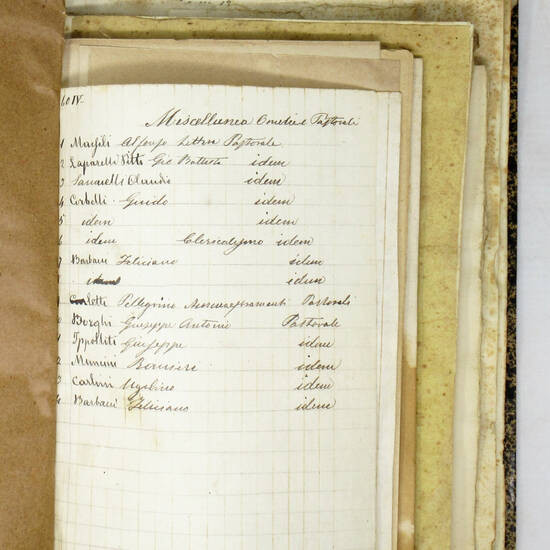 Miscellanea Omelie e Pastorali
1 Marsili Alfonso Lettera Pastorale
2 Laparelli Pitti Gio Battista idem
3 Sanarelli Claudio idem
4 Corbelli Guido idem
5 idem idem
6 idem Clericalismo idem
7 Barbacci Feliciano idem
idem idem
Carletti Pellegrino Pastorali
Borghi Giuseppe Antonio Pastorale
1 Ippoliti Giuseppe idem
2 Mancini idem
3 Carlini Ugolino idem
4 Barbacci Feliciano idem